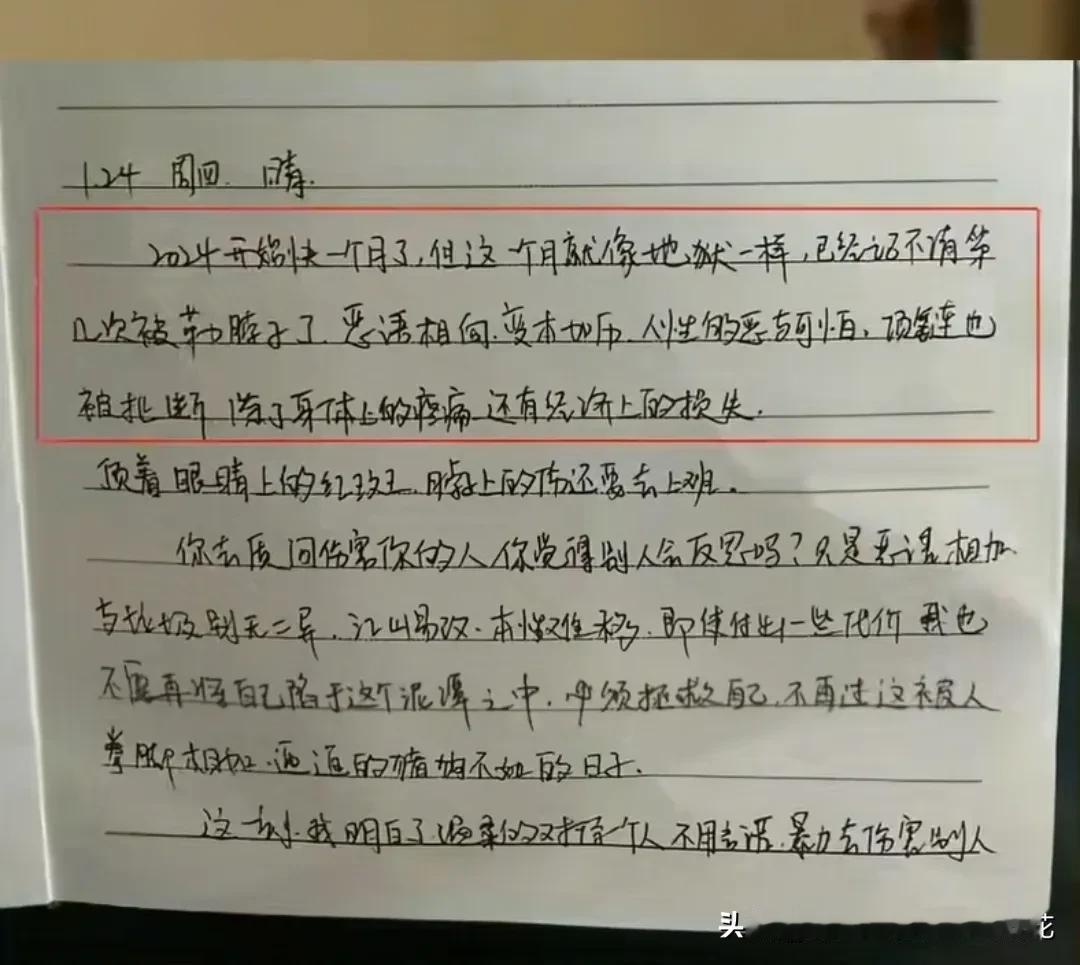 1.24 周四. 晴.
2024开始快一个月了,但这一个月就像地狱一样,已经记不清第
几次被勒脖子了.恶语相向.变本加厉.人性的恶与可怕.项链也
被扯断 除了身体上的疼痛 还有经济上的损失.
顶着眼睛上的红 .脖上的伤还要去上班.
你去质问伤害你的人你觉得别人会反思吗?只是恶语相加
与垃圾别无二异.江山易改.本性难移.即使付出一些代价 我也
不愿再将自己陷于这个泥潭之中.必须拯救自己.不再过这被人
拳脚相加. 的猪狗不如的日子.
这一刻.我明白了温柔的对待一个人不用言语.暴力去伤害别人
头 花